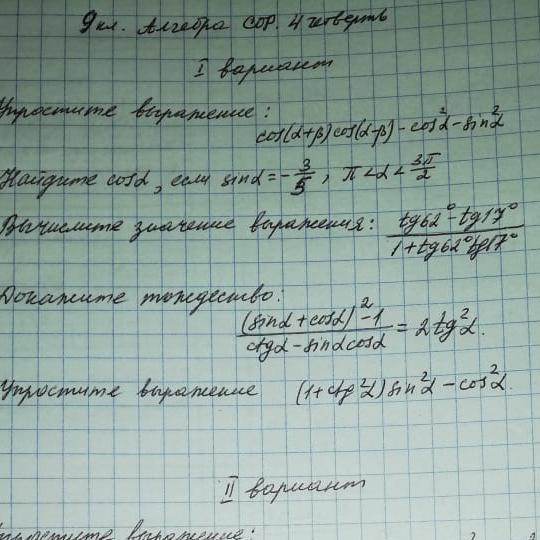 9 кл. Алгебра СОР. 4 четверть
I вариант
Упростите выражение:
cos(α+β)cos(α-β) - cos²α - sin²α
Найдите cosα, если sinα = -3/5, π<α<3π/2
Вычислите значение выражения: (tg62° - tg17°)/(1+tg62°tg17°)
Докажите тождество:
((sinα + cosα)² - 1)/(ctgα - sinαcosα) = 2tg²α.
Упростите выражение (1+ctg²α)sin²α - cos²α.
II вариант
выражение: